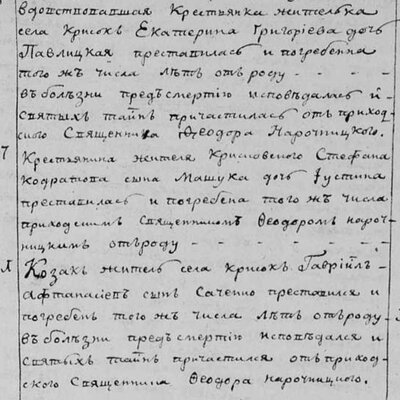 вдовствовавшая Крестьянка жителька
села Крисокъ Екатерина Григоріева дочь
Павлицкая преставилась и погребенна
того жъ числа лѣтъ отъ роду - - - -
въ болѣзни предъ смертію исповѣдалась и
святыхъ таинъ причастилась отъ приход-
ского Священника Ѳеодора Нарочницкого.
7
Крестьянина жителя Крисковского Стефана
Кодратова сына Машука дочь Іустина
преставилась и погребена того жъ числа
приходскимъ Священникомъ Ѳеодоромъ нароч-
ницкимъ отъ роду - - - - - - -
Козакъ житель села Крисокъ Гавріилъ
Афтанасіевъ сынъ Саченко преставился и
погребенъ того жъ числа лѣтъ отъ роду
въ болѣзни предъ смертію исповѣдался и
святыхъ таинъ причастился отъ приход-
ского Священника Ѳеодора нарочницкого.